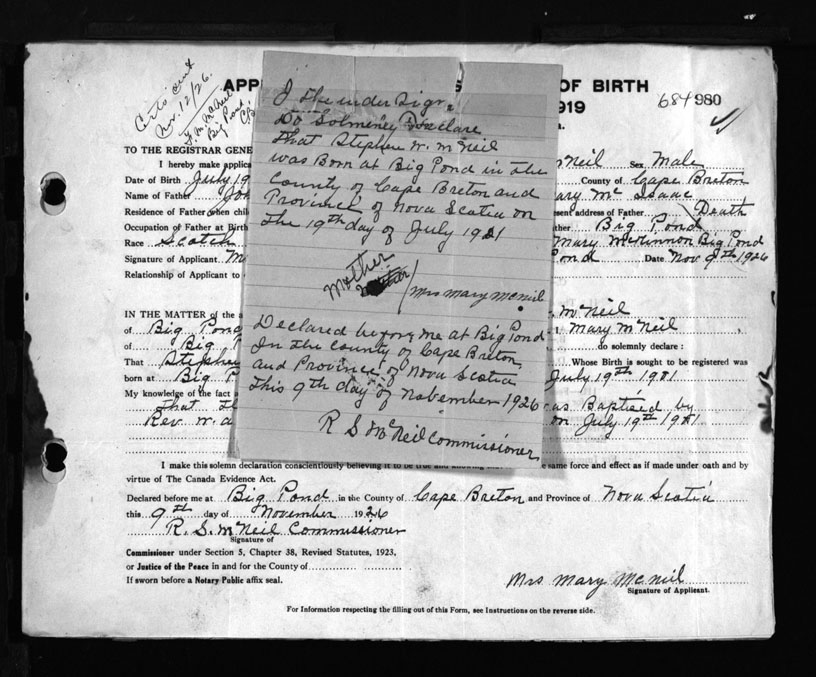 Nov. 12/26.
Big Pond
C/B
APP
OF BIRTH
1919
684 980
TO THE REGISTRAR GENE
I hereby make applica
Neil Sex Male
Date of Birth July 19
County of Cape Breton
Name of Father Jo
ary Mc Isaac
Residence of Father when chil
esent address of Father Death
Occupation of Father at Birth
ther Big Pond
Race Scotch
Mary McKinnon Big Pond
Signature of Applicant M
Pond Date Nov 9th 1926
Relationship of Applicant to
I the under Sign
Do Solmenly Declare
that Stephen W. McNeil
was Born at Big Pond in the
County of Cape Breton and
Province of Nova Scotia on
the 19th day of July 1921
Mother
Mrs Mary McNeil
Declared before me at Big Pond
In the County of Cape Breton
and Province of Nova Scotia
this 9th day of November 1926
R S McNeil Commissioner
IN THE MATTER of the a
McNeil
of Big Pond
Mary McNeil
of Big P
do solemnly declare :
That Stephen
Whose Birth is sought to be registered was
born at Big P
July 19th 1921
My knowledge of the fact
that th
was Baptised by
Rev. W. A
on July 19th 1921
I make this solemn declaration conscientiously believing it to be true and knowing
e same force and effect as if made under oath and by
virtue of The Canada Evidence Act.
Declared before me at Big Pond in the County of Cape Breton and Province of Nova Scotia
this 9th day of November 1926
R. S. McNeil Commissioner
Signature of
Commissioner under Section 5, Chapter 38, Revised Statutes, 1923,
or Justice of the Peace in and for the County of
If sworn before a Notary Public affix seal.
Mrs Mary McNeil
Signature of Applicant.
For Information respecting the filling out of this Form, see Instructions on the reverse side.